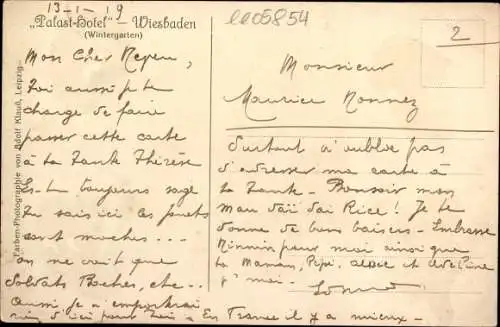 13-1-19
„Palast-Hotel" – Wiesbaden
(Wintergarten)
ee05854
2
Farben-Photographie von Adolf Klauß, Leipzig.
Mon cher Neveu,
Toi aussi je te
charge de faire
passer cette carte
à ta Tante Thérèse
Es-tu toujours sage
Tu sais ici les
sont moches...
on ne voit que
Soldats Boches, etc -
aussi je n'emporterai
rien d'ici pour toi - En France il y a mieux -
Monsieur
Maurice Monnez
Surtout n'oublie pas
d'adresser ma carte à
ta Tante - Bonsoir mon
! Je te
donne de bons baisers - Embrasse
pour moi ainsi que
ta Maman, Pépé, et